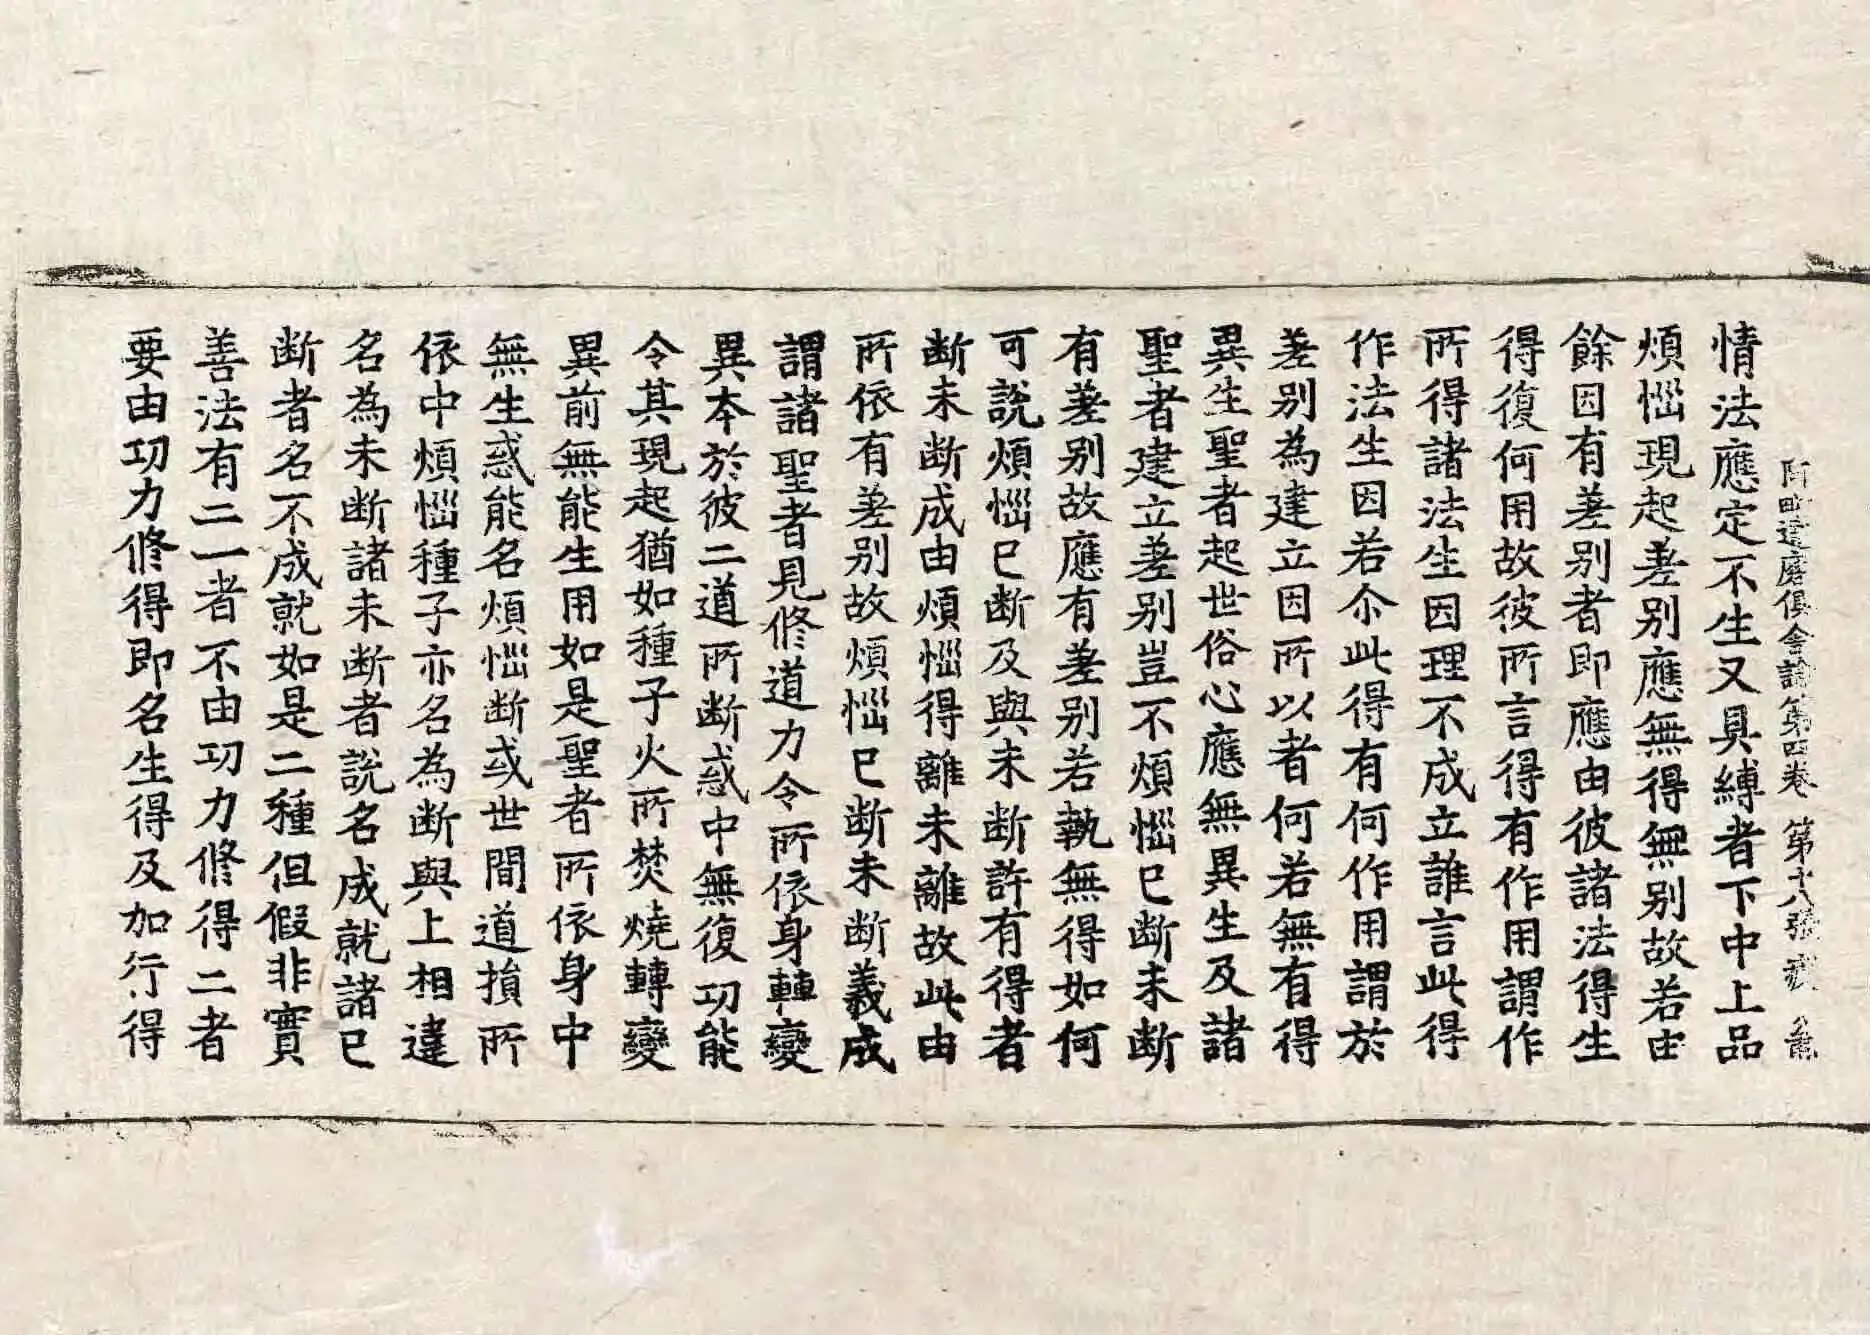 阿毗達磨俱舍論第四卷 第十八張
情法應定不生又具縛者下中上品
煩惱現起差別應無得無別故若由
餘因有差別者即應由彼諸法得生
得復何用故彼所言得有作用謂作
所得諸法生因理不成立誰言此得
作法生因若尒此得有何作用謂於
差別為建立因所以者何若無有得
異生聖者起世俗心應無異生及諸
聖者建立差別豈不煩惱已斷未斷
有差別故應有差別若執無得如何
可說煩惱已断及與未断許有得者
断未断成由煩惱得離未離故此由
所依有差別故煩惱已断未断義成
謂諸聖者見修道力令所依身轉變
異本於彼二道所断惑中無復功能
令其現起猶如種子火所焚燒轉變
異前無能生用如是聖者所依身中
無生惑能名煩惱断或世間道損所
依中煩惱種子亦名為断與上相違
名為未断諸未断者說名成就諸已
断者名不成就如是二種但假非實
善法有二一者不由功力修得二者
要由功力修得即名生得及加行得